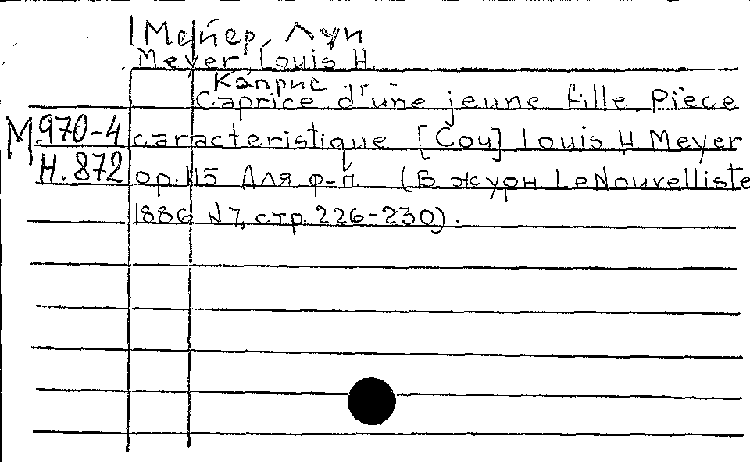 Мейер, Луи
Meyer, Louis H.
Каприс
Caprice d'une jeune fille Pièce
М 970-4 caracteristique [Соч] Louis H Meyer
Н.872 op.115 Для ф-п. (В журн LeNouvelliste
1886 N7, стр. 226-230).